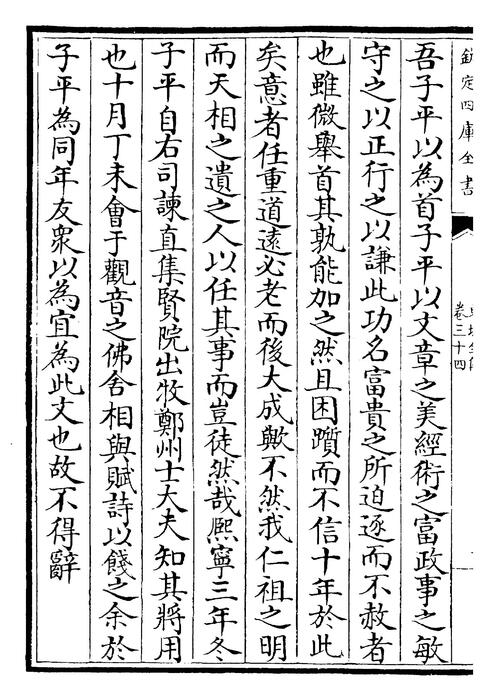 欽定四庫全書
卷三十四
吾子平以為首子平以文章之美經術之富政事之敏
守之以正行之以謙此功名富貴之所迫逐而不赦者
也雖微舉首其孰能加之然且困躓而不信十年於此
矣意者任重道遠必老而後大成歟不然我仁祖之明
而天相之遺之人以任其事而豈徒然哉熈寧三年冬
子平自右司諫直集賢院出牧鄭州士大夫知其將用
也十月丁未會于觀音之佛舍相與賦詩以餞之余於
子平為同年友衆以為宜為此文也故不得辭